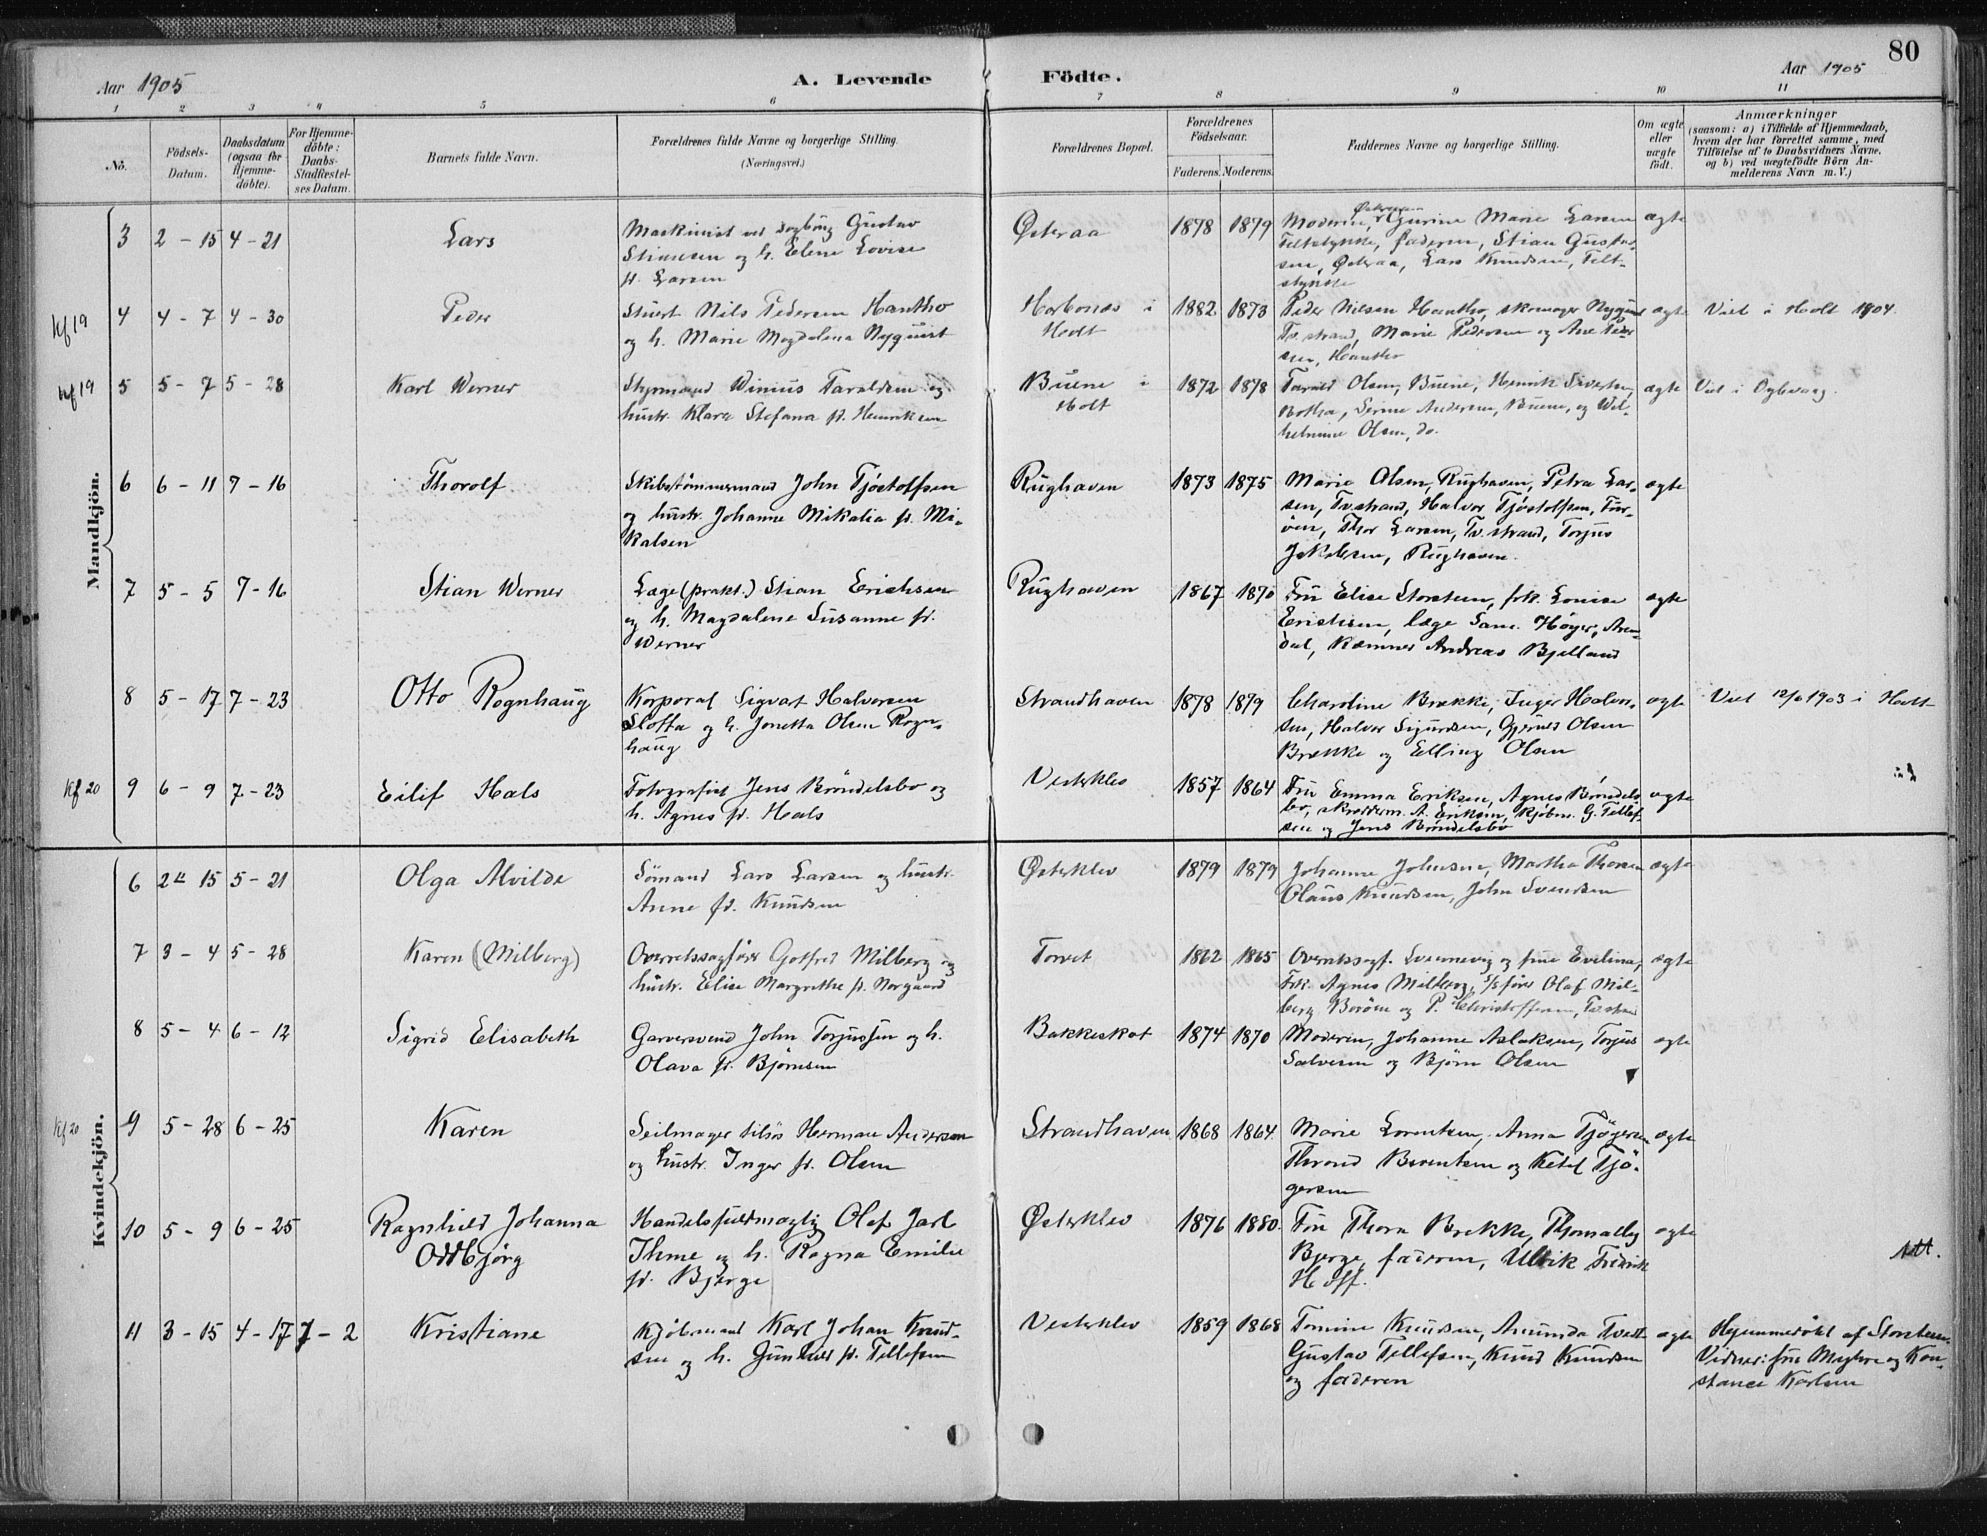 80
Aar 1905
A. Levende Födte.
Aar 1905
1 2 3 4 5 6 7 8 9 10 11
No.
Födsels-Datum.
Daabsdatum (ogsaa for Hjemme-döbte).
For Hjemme-döbte: Daabs-Stadfæstelses Datum.
Barnets fulde Navn.
Forældrenes fulde Navne og borgerlige Stilling. (Næringsvei.)
Forældrenes Bopæl.
Forældrenes Födselsaar.
Faderens. Moderens.
Faddernes Navne og borgerlige Stilling.
Om ægte eller uægte födt.
Anmærkninger
(saasom: a) i Tilfælde af Hjemmedaab, hvem der har forrettet samme, med Tilföielse af to Daabsvidners Navne, og b) ved uægtefödte Börn Anmelderens Navn m. V.)
Mandkjön.
3 2 - 15 4 - 21 Lars
Maskinist ved Gustav
Stiansen og h. Elene Lovise
f. Larsen
Østeraa 1878 1879
Moderen, Østeraa, Gurine Marie Larsen
Teltstykke, faderen, Stian Gustav-
sen, Østeraa, Lars Knudsen, Telt-
stykke
ægte
kf 19
4 4 - 7 4 - 30 Peder
Stuert Nils Pedersen Hantho
og h. Marie Magdalena Nyquist
i Holt
1882 1873
Peder Nilsen Hantho, skomager Nyquist
Tv.strand, Marie Pedersen og Ane Peder-
sen, Hantho
ægte
Viet i Holt 1904.
kf 19
5 5 - 7 5 - 28 Karl Werner
Styrmand Winius Taraldsen og
hustr. Klara Stefana f. Henriksen
Buene i Holt
1872 1878
Tarald Olsen, Buene, Henrik Sivertsen,
Serine Andersen, Buene, og Wil-
helmine Olsen, do.
ægte
Viet i
6 6 - 11 7 - 16 Thorolf
Skibstömmermand John Tjöstolfsen
og hustr. Johanne Mikalia f. Mi-
kalsen
Rughaven 1873 1875
Marie Olsen, Rughaven, Petra Lar-
sen, Tv.strand, Halvor Tjöstolfsen, Fur-
öen, Thor Larsen, Tv.strand, Torjus
Jakobsen, Rughaven.
ægte
7 5 - 5 7 - 16 Stian Werner
Læge (prakt.) Stian Erichsen
og h. Magdalene Susanne f.
Werner
Rughaven 1867 1870
Fru Elise Storsteen, frk. Lovise
Erichsen, læge Sam. Høyer, Aren-
dal, Kæmner Andreas Bjelland
ægte
8 5 - 17 7 - 23 Otto Rognhaug
Korporal Sigvart Halvorsen
Slotta og h. Jonetta Olsen Rogn-
haug
Strandhaven 1878 1879
Charoline Brække, Inger Halvor-
sen, Halvor Sigurdsen, Gjerulf Olsen
Brække og Elling Olsen
ægte
Viet 12/6 1903 i Holt
Kf 20
9 6 - 9 7 - 23 Eilif Hals
Fotografist Jens Bröndelsbo og
h. Agnes f. Hals
Vesterklev 1857 1864
Fru Emma Eriksen, Agnes Bröndels-
bo, skrædderm. A. Eriksen, kjöbm. G. Tellef-
sen og Jens Bröndelsbo
ægte
Kvindekjön.
6 2 - 15 5 - 21 Olga Alvilde
Sömand Lars Larsen og hustr.
Anne fd. Knudsen
Østerklev 1879 1879
Johanne Johnsen, Martha Thorsen
Olaus Knudsen, John Svendsen
ægte
7 3 - 4 5 - 28 Karen (Milberg)
Overretssagförer Gotfred Milberg og
hustr. Elise Margrethe f. Norgaard
Torvet 1862 1865
Overretssagf. Svennevig og frue Evelina,
Frk. Agnes Milberg, s/s förer Olaf Mil-
berg Boröen og P. Christoffersen, Tv.strand
ægte
8 5 - 4 6 - 12 Sigrid Elisabeth
Garversvend John Torjussen og h.
Olava f. Björnsen
Bakkeskot 1874 1870
Moderen, Johanne Aslaksen, Torjus
Salvesen og Björn Olsen
ægte
Kf 20
9 5 - 28 6 - 25 Karen
Seilmager tilsös Herman Andersen
og hustr. Inger f. Olsen
Strandhaven 1868 1864
Marie Lorentsen, Anna Tjögersen
Thrond Berentsen og Ketil Tjö-
gersen
ægte
10 5 - 9 6 - 25 Ragnhild Johanna
Oddbjörg
Handelsfuldmægtig Olaf Jarl
Ihme og h. Ragna Emilie
f. Bjerge
Østerklev 1876 1880
Fru Thora Brekke,
Bjerge, faderen, Ulrik Fredrik
Hoff.
ægte
Att.
11 3 - 15 4 - 17 7 - 2 Kristiane
Kjöbmand Karl Johan Knud-
sen og h. Gunhild f. Tellefsen
Vesterklev 1859 1868
Tomine Knudsen, Amunda Tvedt
Gustav Tellefsen, Knud Knudsen
og faderen
ægte
Hjemmedöbt af Storsteen
Vidner: fru Myhre og Kon-
stance Karlsen